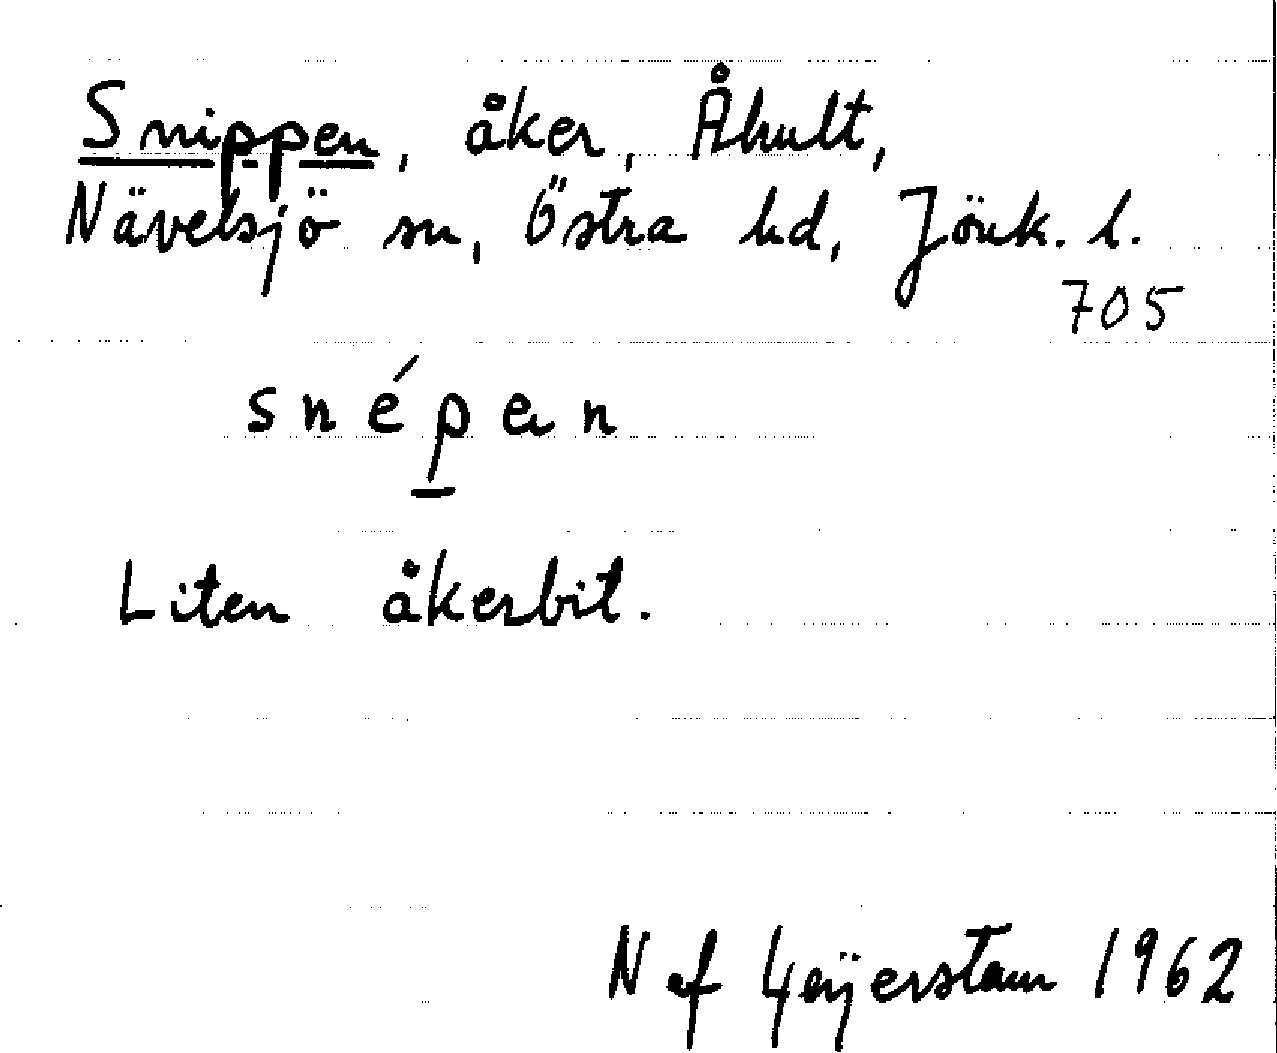 Snippen, åker, Åhult,
Nävelsjö sn, Östra hd, Jönk. l.
705
snépən
Liten åkerbit.
N af Geijerstam 1962